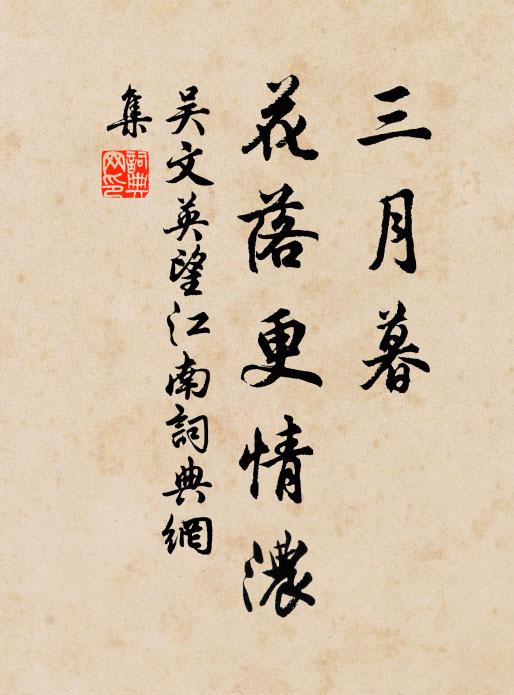 三月暮
花落更情濃
吴文英望江南詞典網
集
詞典
网印